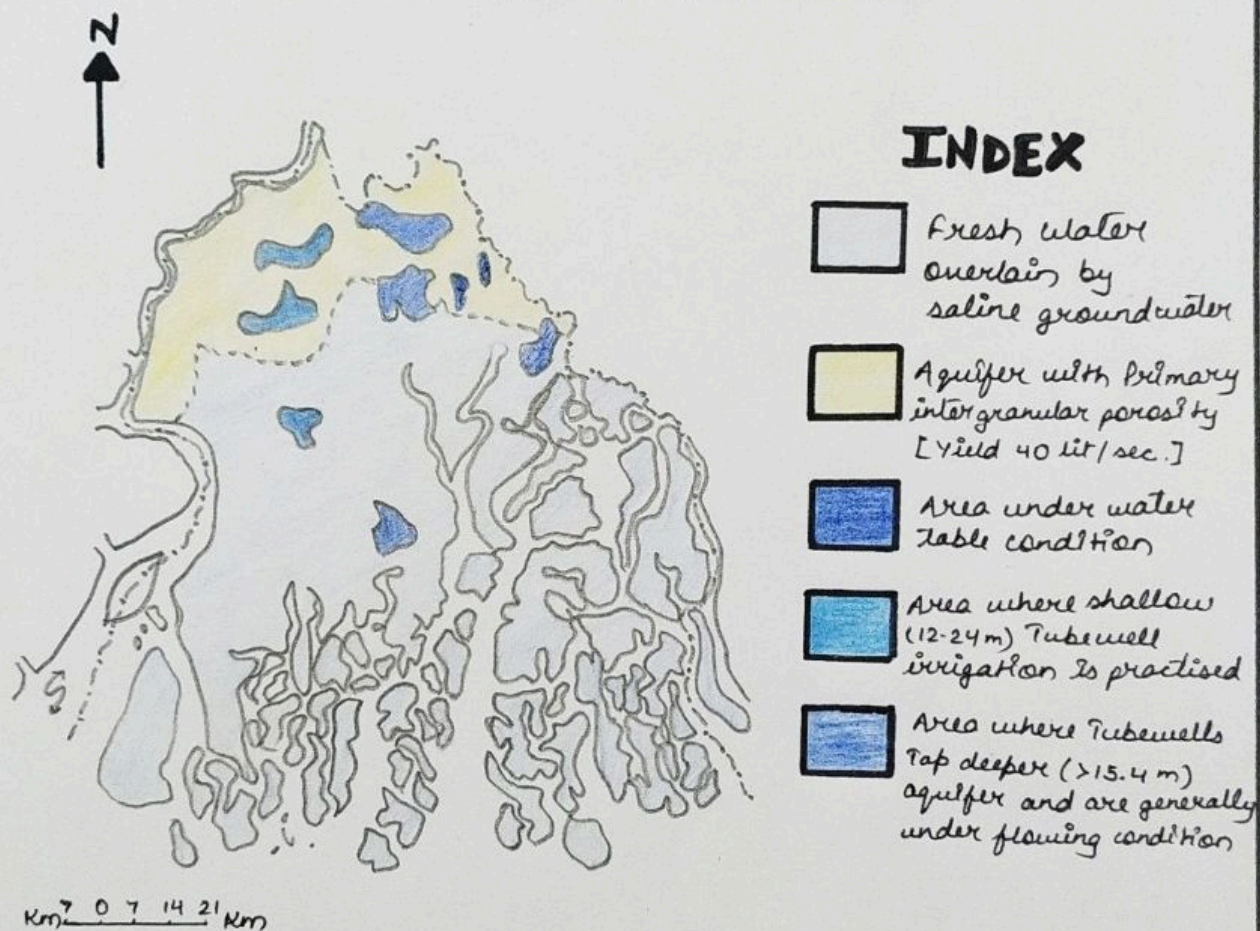 N
INDEX
Fresh water
overlain by
saline groundwater
Aquifer with Primary
intergranular porosity
[Yield 40 lit/sec.]
Area under water
table condition
Area where shallow
(12-24m) Tubewell
irrigation is practised
Area where Tubewells
Tap deeper (>15.4 m)
aquifer and are generally
under flowing condition
Km 7 0 7 14 21 Km